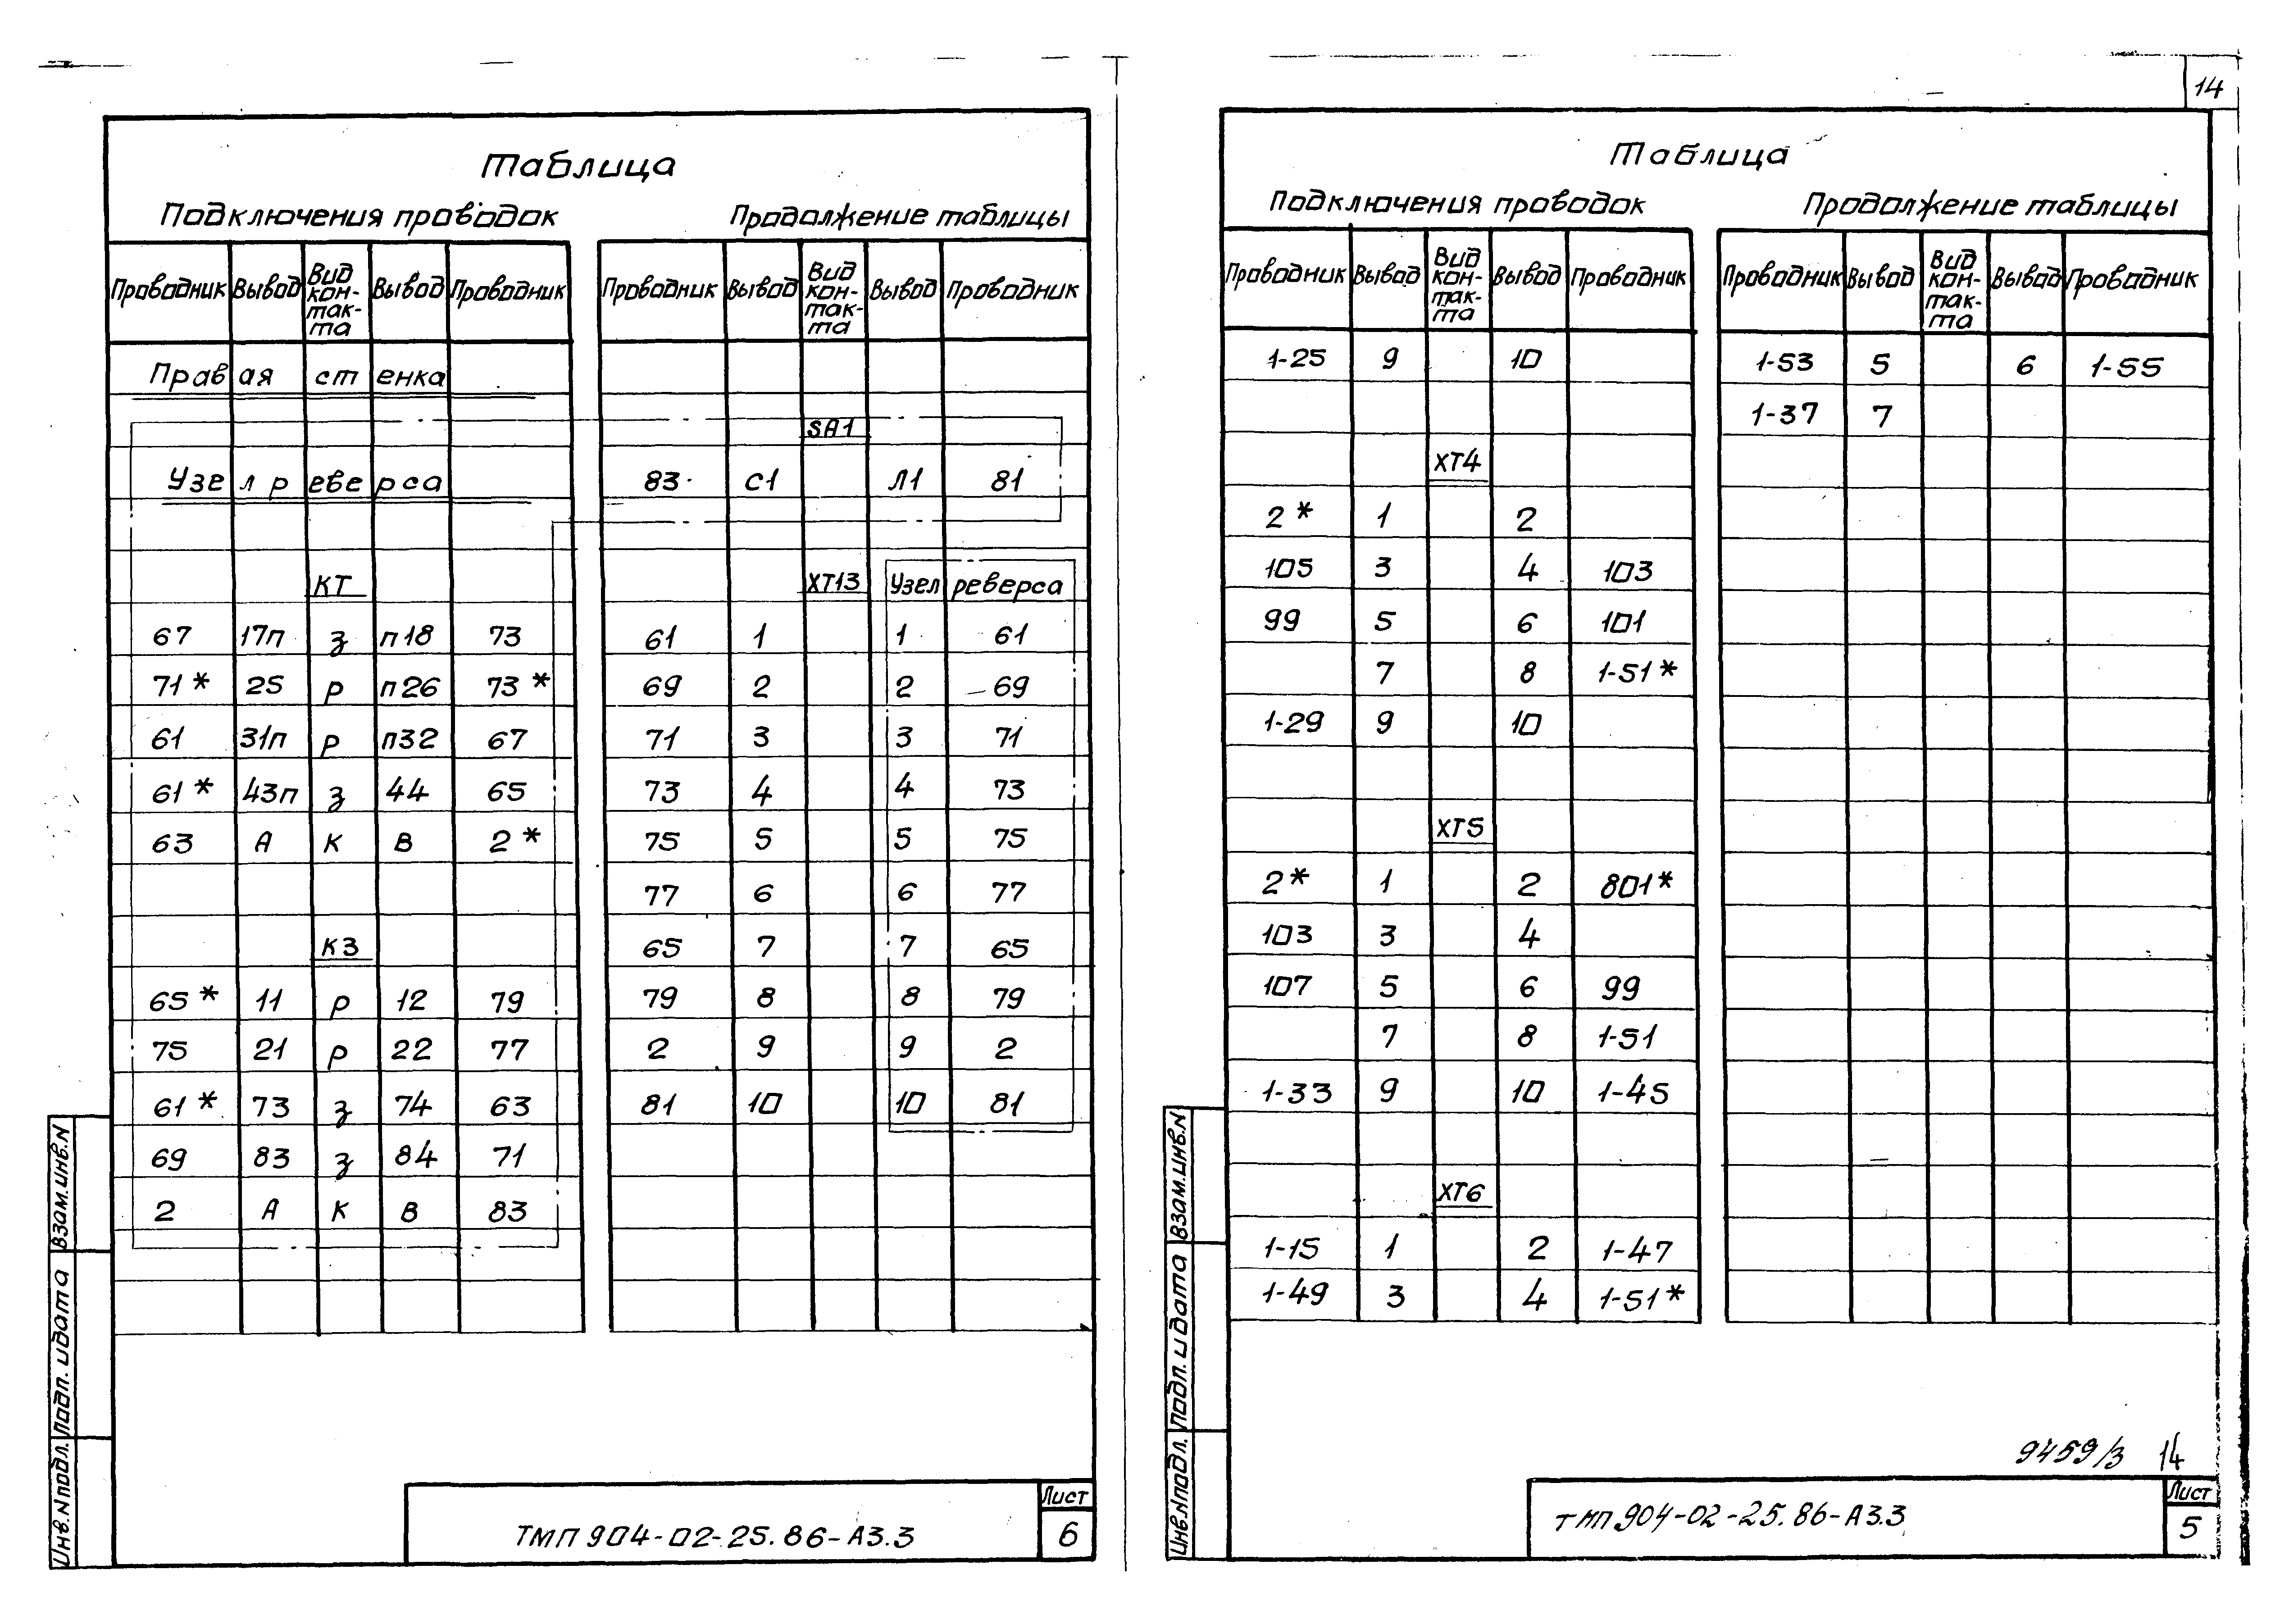 14
Таблица
Подключения проводок
Продолжение таблицы
Проводник Вывод Вид кон-так-та Вывод Проводник
Правая стенка
Узел реверса
КТ
67 17п з п18 73
71* 25 р п26 73*
61 31п р п32 67
61* 43п з 44 65
63 А К В 2*
К3
65* 11 р 12 79
75 21 р 22 77
61* 73 з 74 63
69 83 з 84 71
2 А К В 83
Проводник Вывод Вид кон-так-та Вывод Проводник
SA1
83 С1 Л1 81
ХТ13 Узел реверса
61 1 1 61
69 2 2 69
71 3 3 71
73 4 4 73
75 5 5 75
77 6 6 77
65 7 7 65
79 8 8 79
2 9 9 2
81 10 10 81
Взам.инв.N
Подп. и дата
Инв.Nподл.
ТМП 904-02-25.86-А3.3
Лист
6
Таблица
Подключения проводок
Продолжение таблицы
Проводник Вывод Вид кон-так-та Вывод Проводник
1-25 9 10
ХТ4
2* 1 2
105 3 4 103
99 5 6 101
7 8 1-51*
1-29 9 10
ХТ5
2* 1 2 801*
103 3 4
107 5 6 99
7 8 1-51
1-33 9 10 1-45
ХТ6
1-15 1 2 1-47
1-49 3 4 1-51*
Проводник Вывод Вид кон-так-та Вывод Проводник
1-53 5 6 1-55
1-37 7
Взам.инв.N
Подп. и дата
Инв.Nподл.
9459/3 14
ТМП 904-02-25.86-А3.3
Лист
5